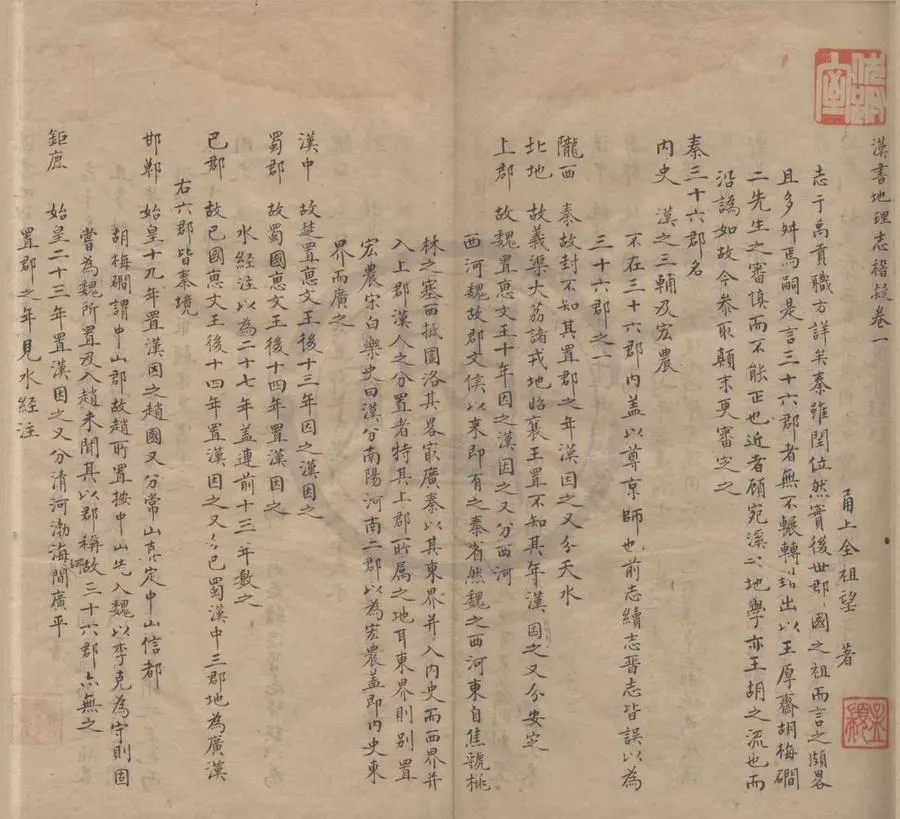 漢書地理志稽疑卷一
甬上全祖望 著
志于禹貢職方詳矣秦雖閏位然實後世郡國之祖而言之頗畧
且多舛焉嗣是言三十六郡者無不輾轉出以王厚齋胡梅磵
二先生之審慎而不能正也近者顧宛溪地學亦王胡之流也而
沿譌如故今參取顛末更審定之
秦三十六郡名
內史 漢之三輔及宏農
不在三十六郡內盖以尊京師也前志續志晋志皆誤以為
三十六郡之一
隴西 秦故封不知其置郡之年漢因之又分天水
北地 故義渠大荔諸戎地昭襄王置不知其年漢因之又分安定
上郡 故魏置惠文王十年因之漢因之又分西河
西河魏故郡文侯以來即有之秦省然魏之西河東自焦虢桃
林之塞西抵關洛其畧最廣秦以其東界并入內史而西界并
入上郡漢人之分置者特其上郡所属之地耳東界則別置
宏農宋白樂史曰漢分南陽河南二郡以為宏農盖即內史東
界而廣之
漢中 故楚置惠文王後十三年因之漢因之
蜀郡 故蜀國惠文王後十四年置漢因之
水經注以為二十七年盖連前十三年數之
巴郡 故巴國惠文王後十四年置漢因之又分巴蜀漢中三郡地為廣漢
右六郡皆秦境
邯鄲 始皇十九年置漢因之趙國又分常山真定中山信都
胡梅磵謂中山郡故趙所置按中山先入魏以李克為守則固
嘗為魏所置及入趙未聞其以郡稱故三十六郡亦無之
鉅鹿 始皇二十三年置漢因之又分清河渤海河間廣平
置郡之年見水經注